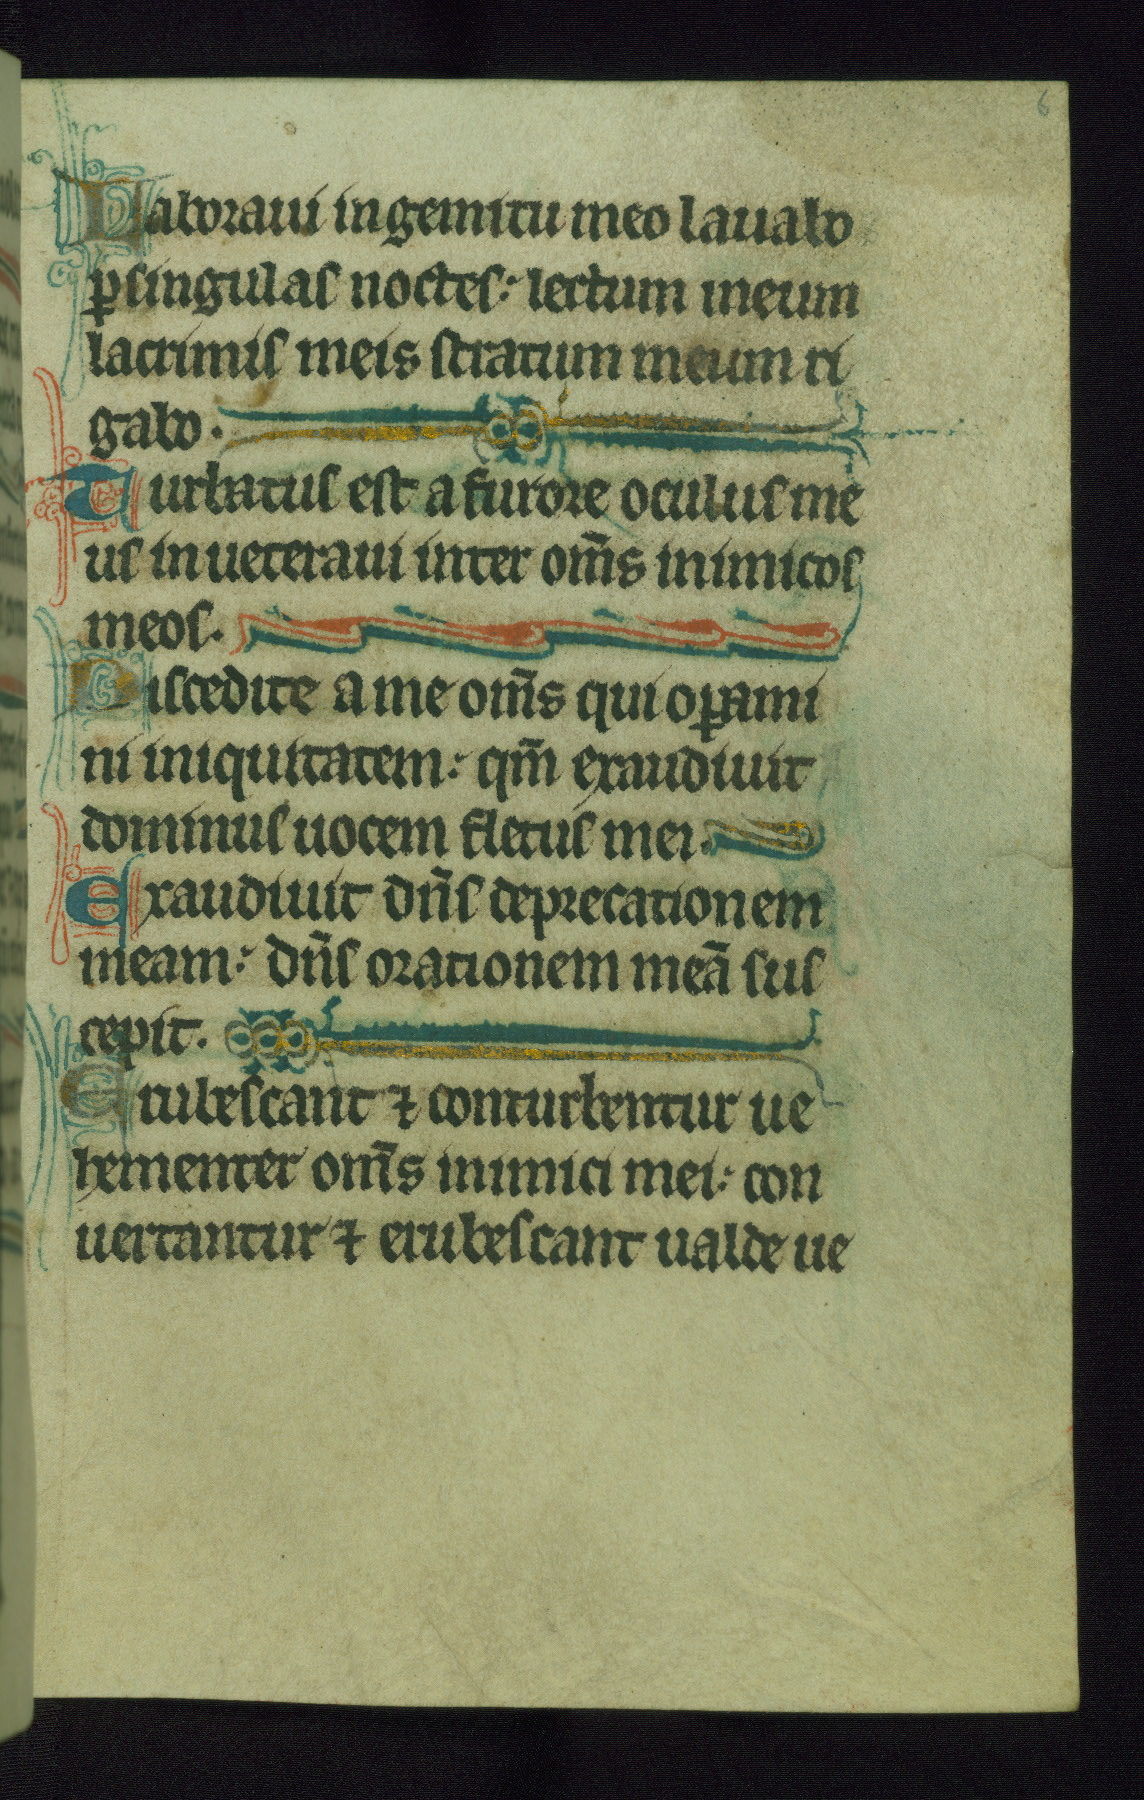 6
Laboraui in gemitu meo lauabo
ꝑ singulas noctes: lectum meum
lacrimis meis stratum meum ri
gabo.
Turbatus est a furore oculus me
us inueteraui inter om̄s inimicos
meos.
Discedite a me om̄s qui oꝑami
ni iniquitatem: qm̄ exaudiuit
dominus uocem fletus mei.
Exaudiuit dn̄s deprecationem
meam: dn̄s orationem meā sus
cepit.
Erubescant ⁊ conturbentur ue
hementer om̄s inimici mei: con
uertantur ⁊ erubescant ualde ue